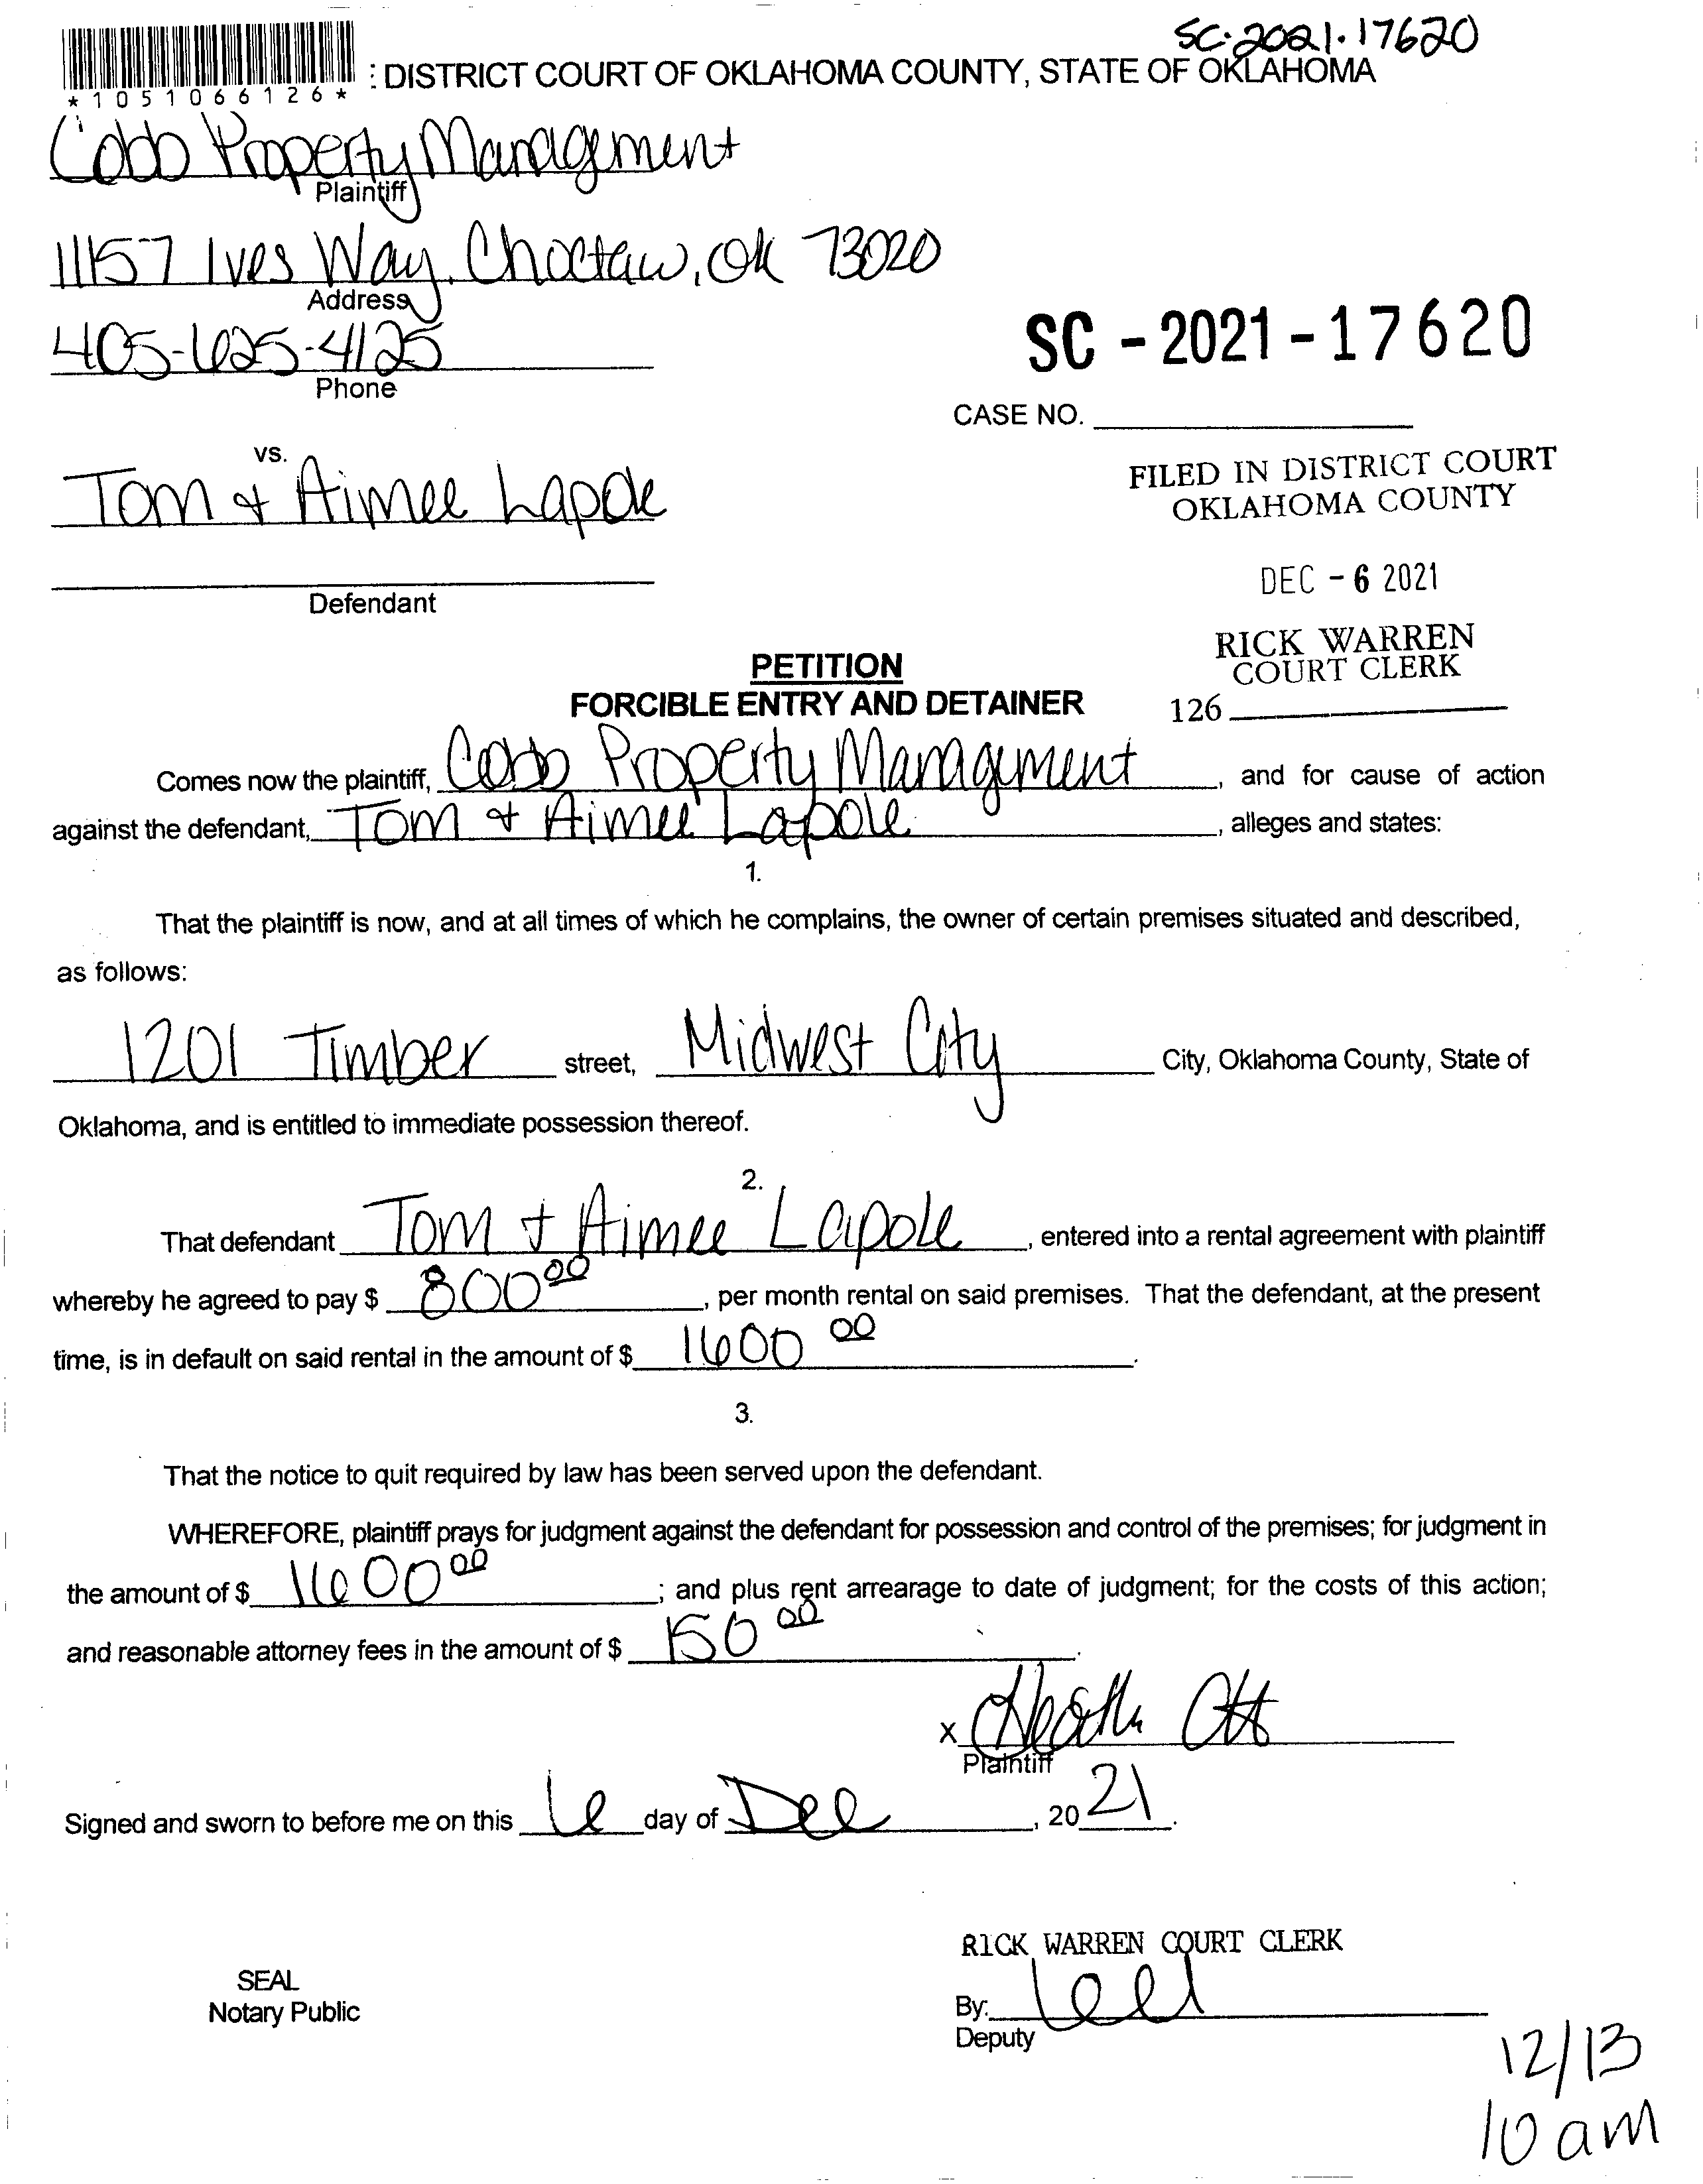 SC-2021-17620
*1051066126*
: DISTRICT COURT OF OKLAHOMA COUNTY, STATE OF OKLAHOMA
Cobb Property Management
Plaintiff
11157 Ives Way, Choctaw, OK 73020
Address
405-625-4125
Phone
SC - 2021 - 17620
CASE NO.
vs.
Tom & Aimee Lapole
FILED IN DISTRICT COURT
OKLAHOMA COUNTY
Defendant
DEC - 6 2021
RICK WARREN
COURT CLERK
126
PETITION
FORCIBLE ENTRY AND DETAINER
Comes now the plaintiff, Cobb Property Management, and for cause of action
against the defendant, Tom & Aimee Lapole, alleges and states:
1.
That the plaintiff is now, and at all times of which he complains, the owner of certain premises situated and described,
as follows:
1201 Timber street, Midwest City City, Oklahoma County, State of
Oklahoma, and is entitled to immediate possession thereof.
2.
That defendant Tom & Aimee Lapole, entered into a rental agreement with plaintiff
whereby he agreed to pay $ 800 00, per month rental on said premises. That the defendant, at the present
time, is in default on said rental in the amount of $ 1600 00.
3.
That the notice to quit required by law has been served upon the defendant.
WHEREFORE, plaintiff prays for judgment against the defendant for possession and control of the premises; for judgment in
the amount of $ 1600 00; and plus rent arrearage to date of judgment; for the costs of this action;
and reasonable attorney fees in the amount of $ 150 00.
x Heath Ott
Plaintiff
Signed and sworn to before me on this 6 day of Dec, 2021.
RICK WARREN COURT CLERK
SEAL
Notary Public
By:
Deputy
12/13
10 am